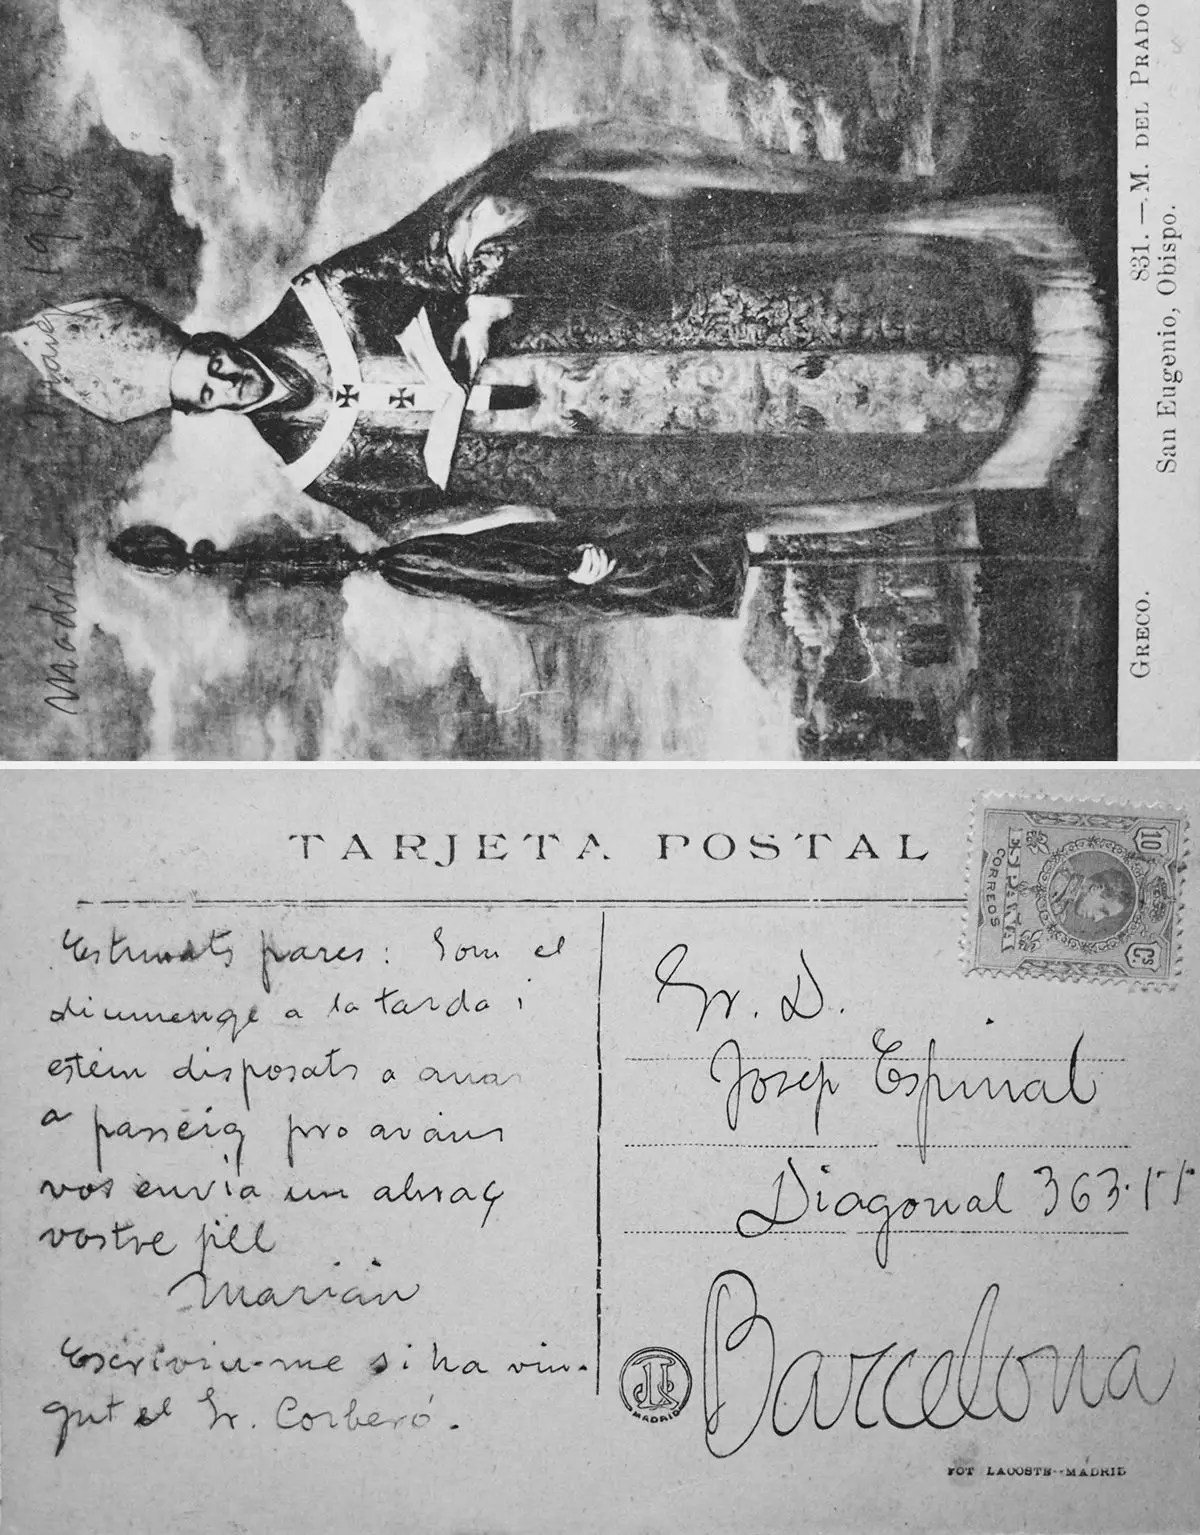 Madrid Març 1918
831.—M. DEL PRADO
GRECO.
San Eugenio, Obispo.
TARJETA POSTAL
10 Cs
ESPAÑA
CORREOS
Estimats pares: Som el
diumenge a la tarda i
estèm disposats a anar
a passeig pro avans
vos envia un abraç
vostre fill
Marián
Escriviu-me si ha vin-
gut el Sr. Corberó.
Sr. D.
Josep Espinal
Diagonal 363
Barcelona
MADRID
FOT LACOSTE--MADRID